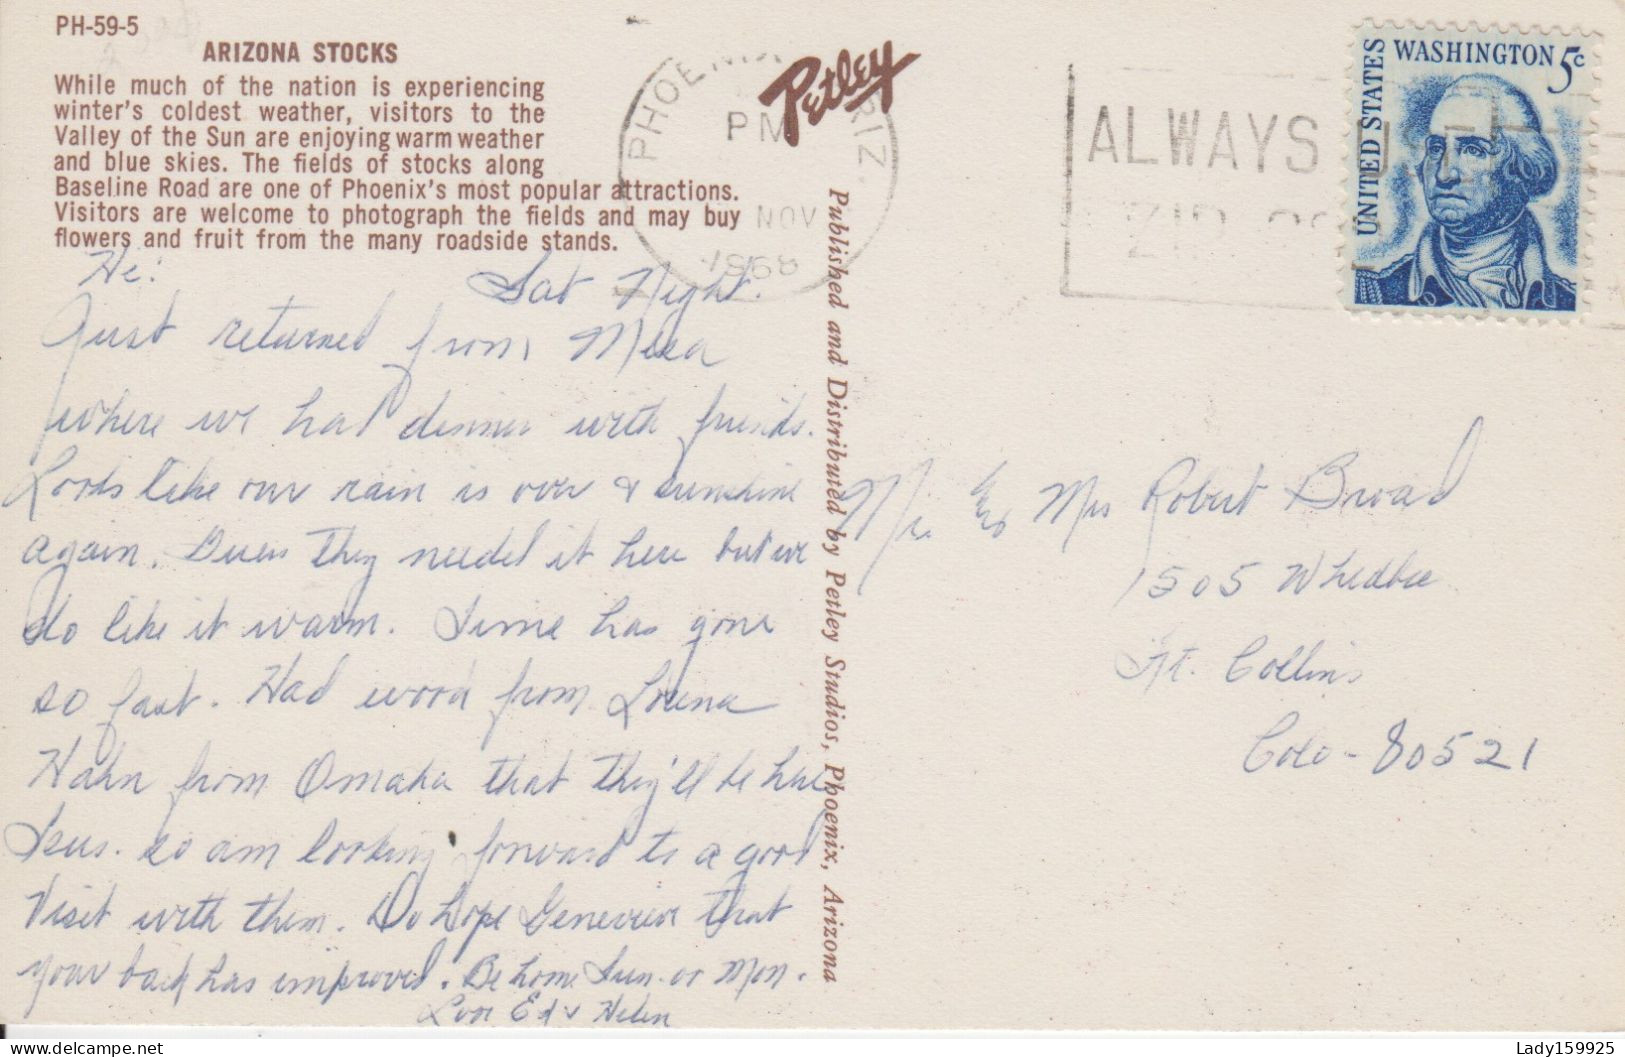 PH-59-5
ARIZONA STOCKS
While much of the nation is experiencing
winter's coldest weather, visitors to the
Valley of the Sun are enjoying warm weather
and blue skies. The fields of stocks along
Baseline Road are one of Phoenix's most popular attractions.
Visitors are welcome to photograph the fields and may buy
flowers and fruit from the many roadside stands.
Hi:
Sat Night.
Just returned from Mesa
where we had dinner with friends.
Looks like our rain is over & sunshine
again. Guess they needed it here but we
do like it warm. Time has gone
so fast. Had word from Lorena
Hahn from Omaha that they'll be here
Tues. so am looking forward to a good
Visit with them. Do hope Genevieve that
your back has improved. Be home Sun. or Mon.
Love Ed & Helen
Petley
Published and Distributed by Petley Studios, Phoenix, Arizona
PHOENIX ARIZ.
PM
NOV
1968
ALWAYS USE
ZIP
UNITED STATES
WASHINGTON 5c
Mr. & Mrs Robert Broad
1505 Whedbee
Ft. Collins
Colo - 80521
Lady159925
delcampe.net